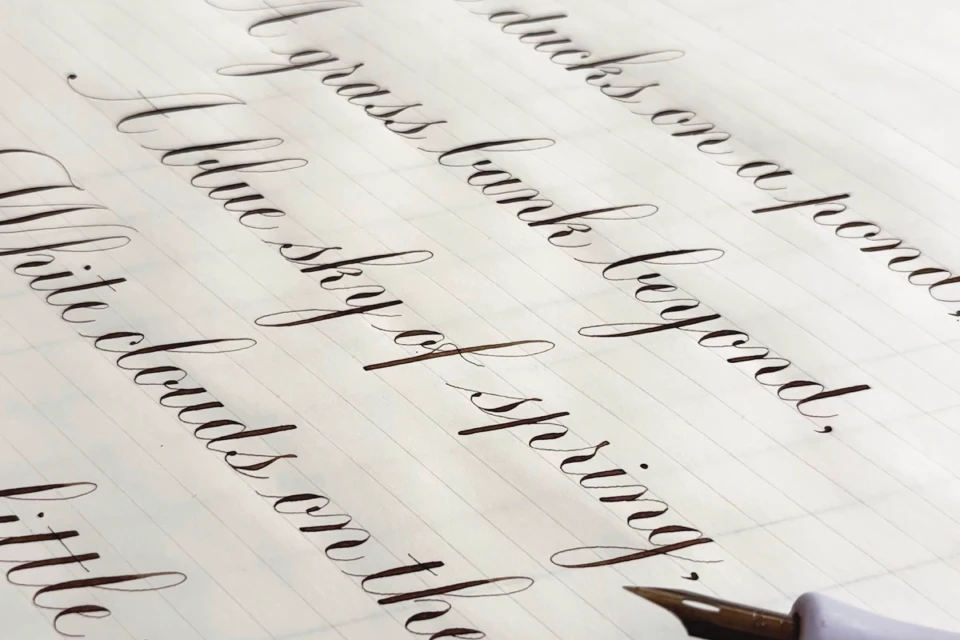 ducks on a pond,
A grass bank beyond,
A blue sky of spring,
White clouds on the
little